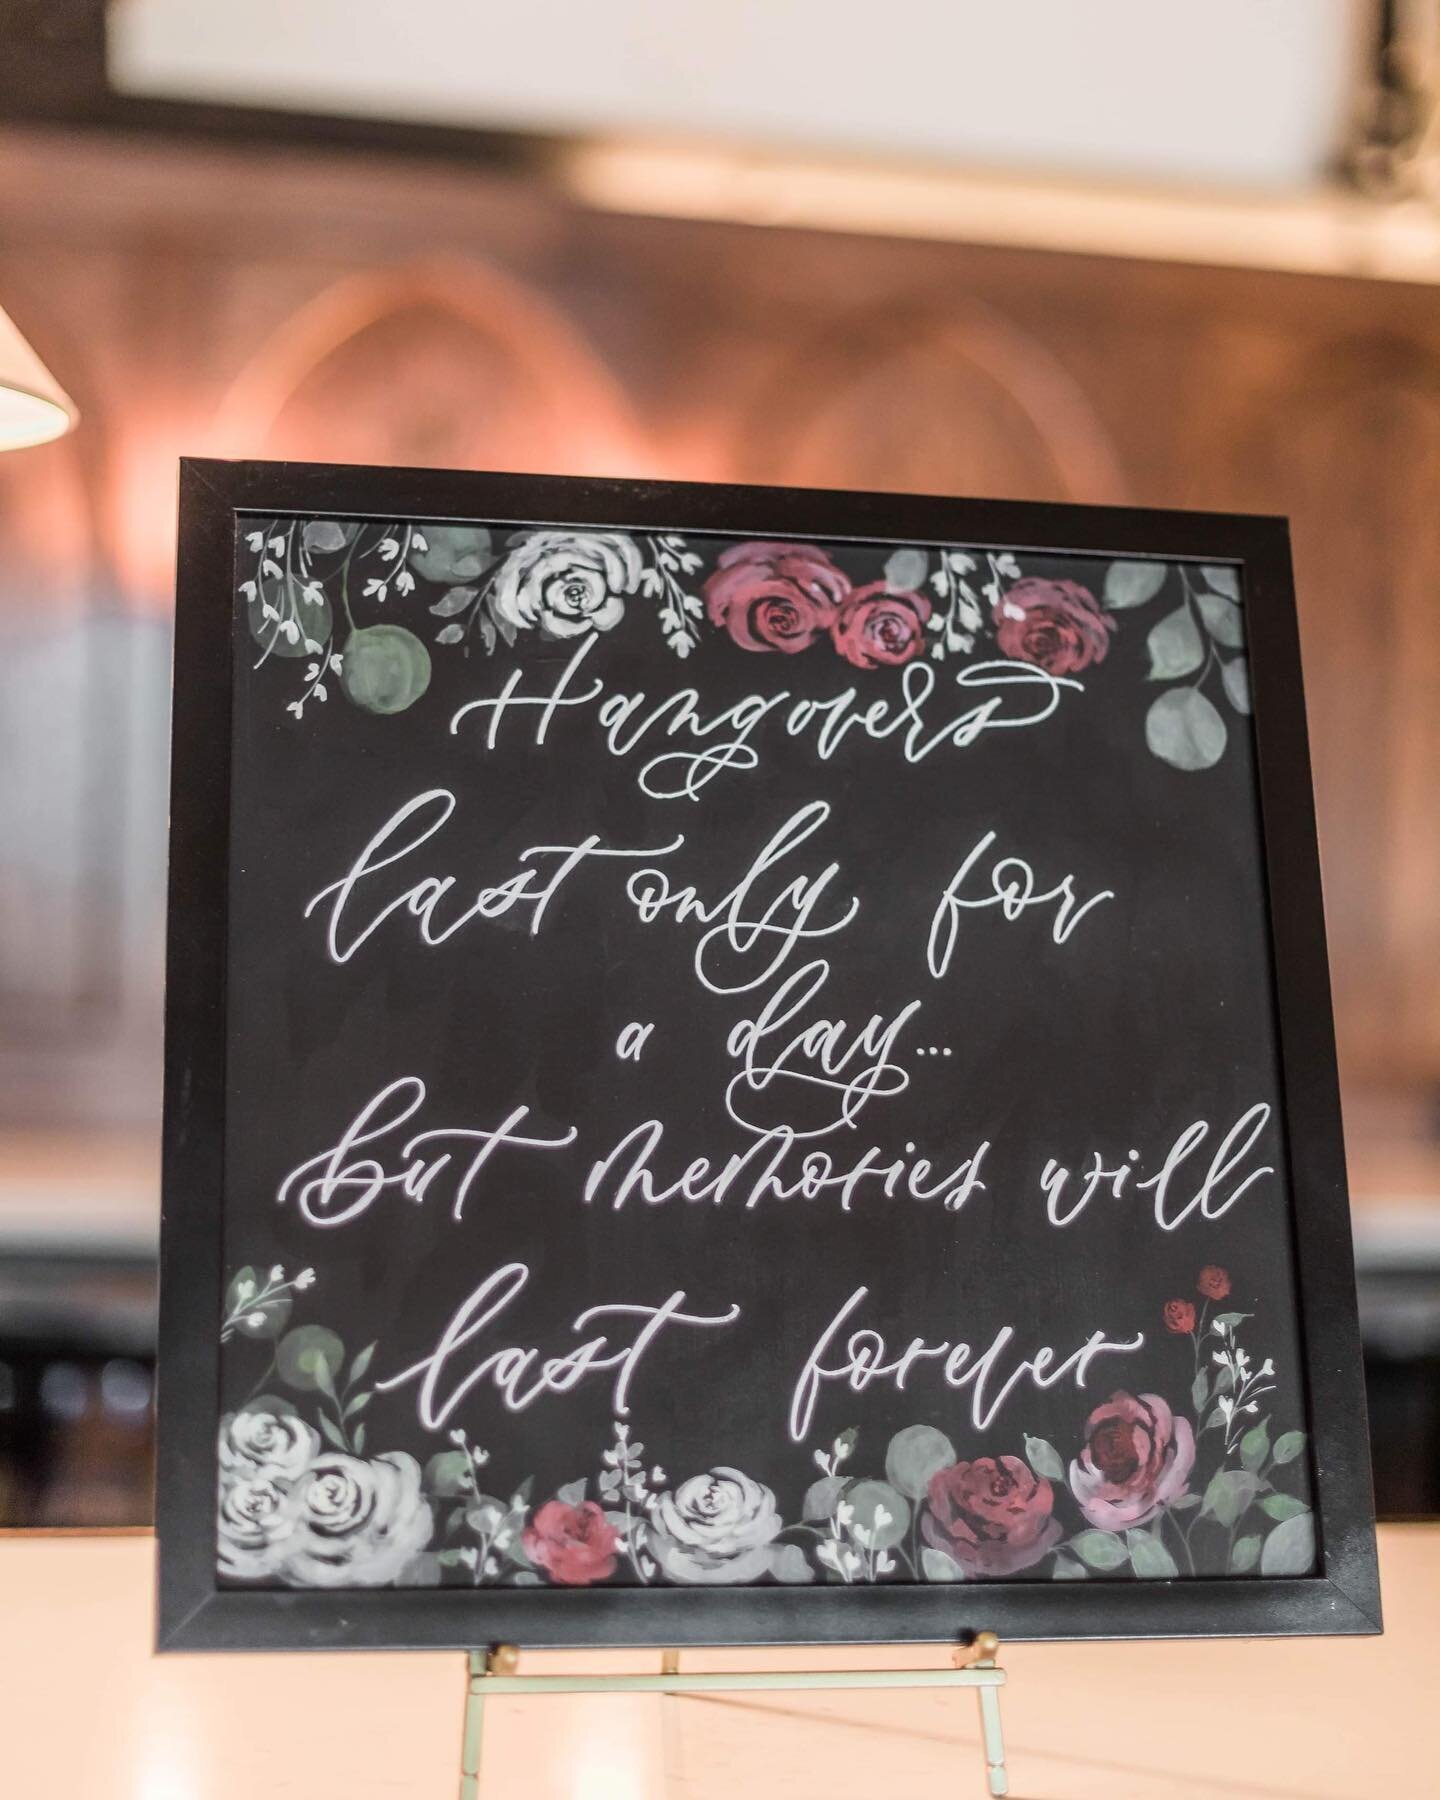 Hangovers
last only for
a day...
but memories will
last forever